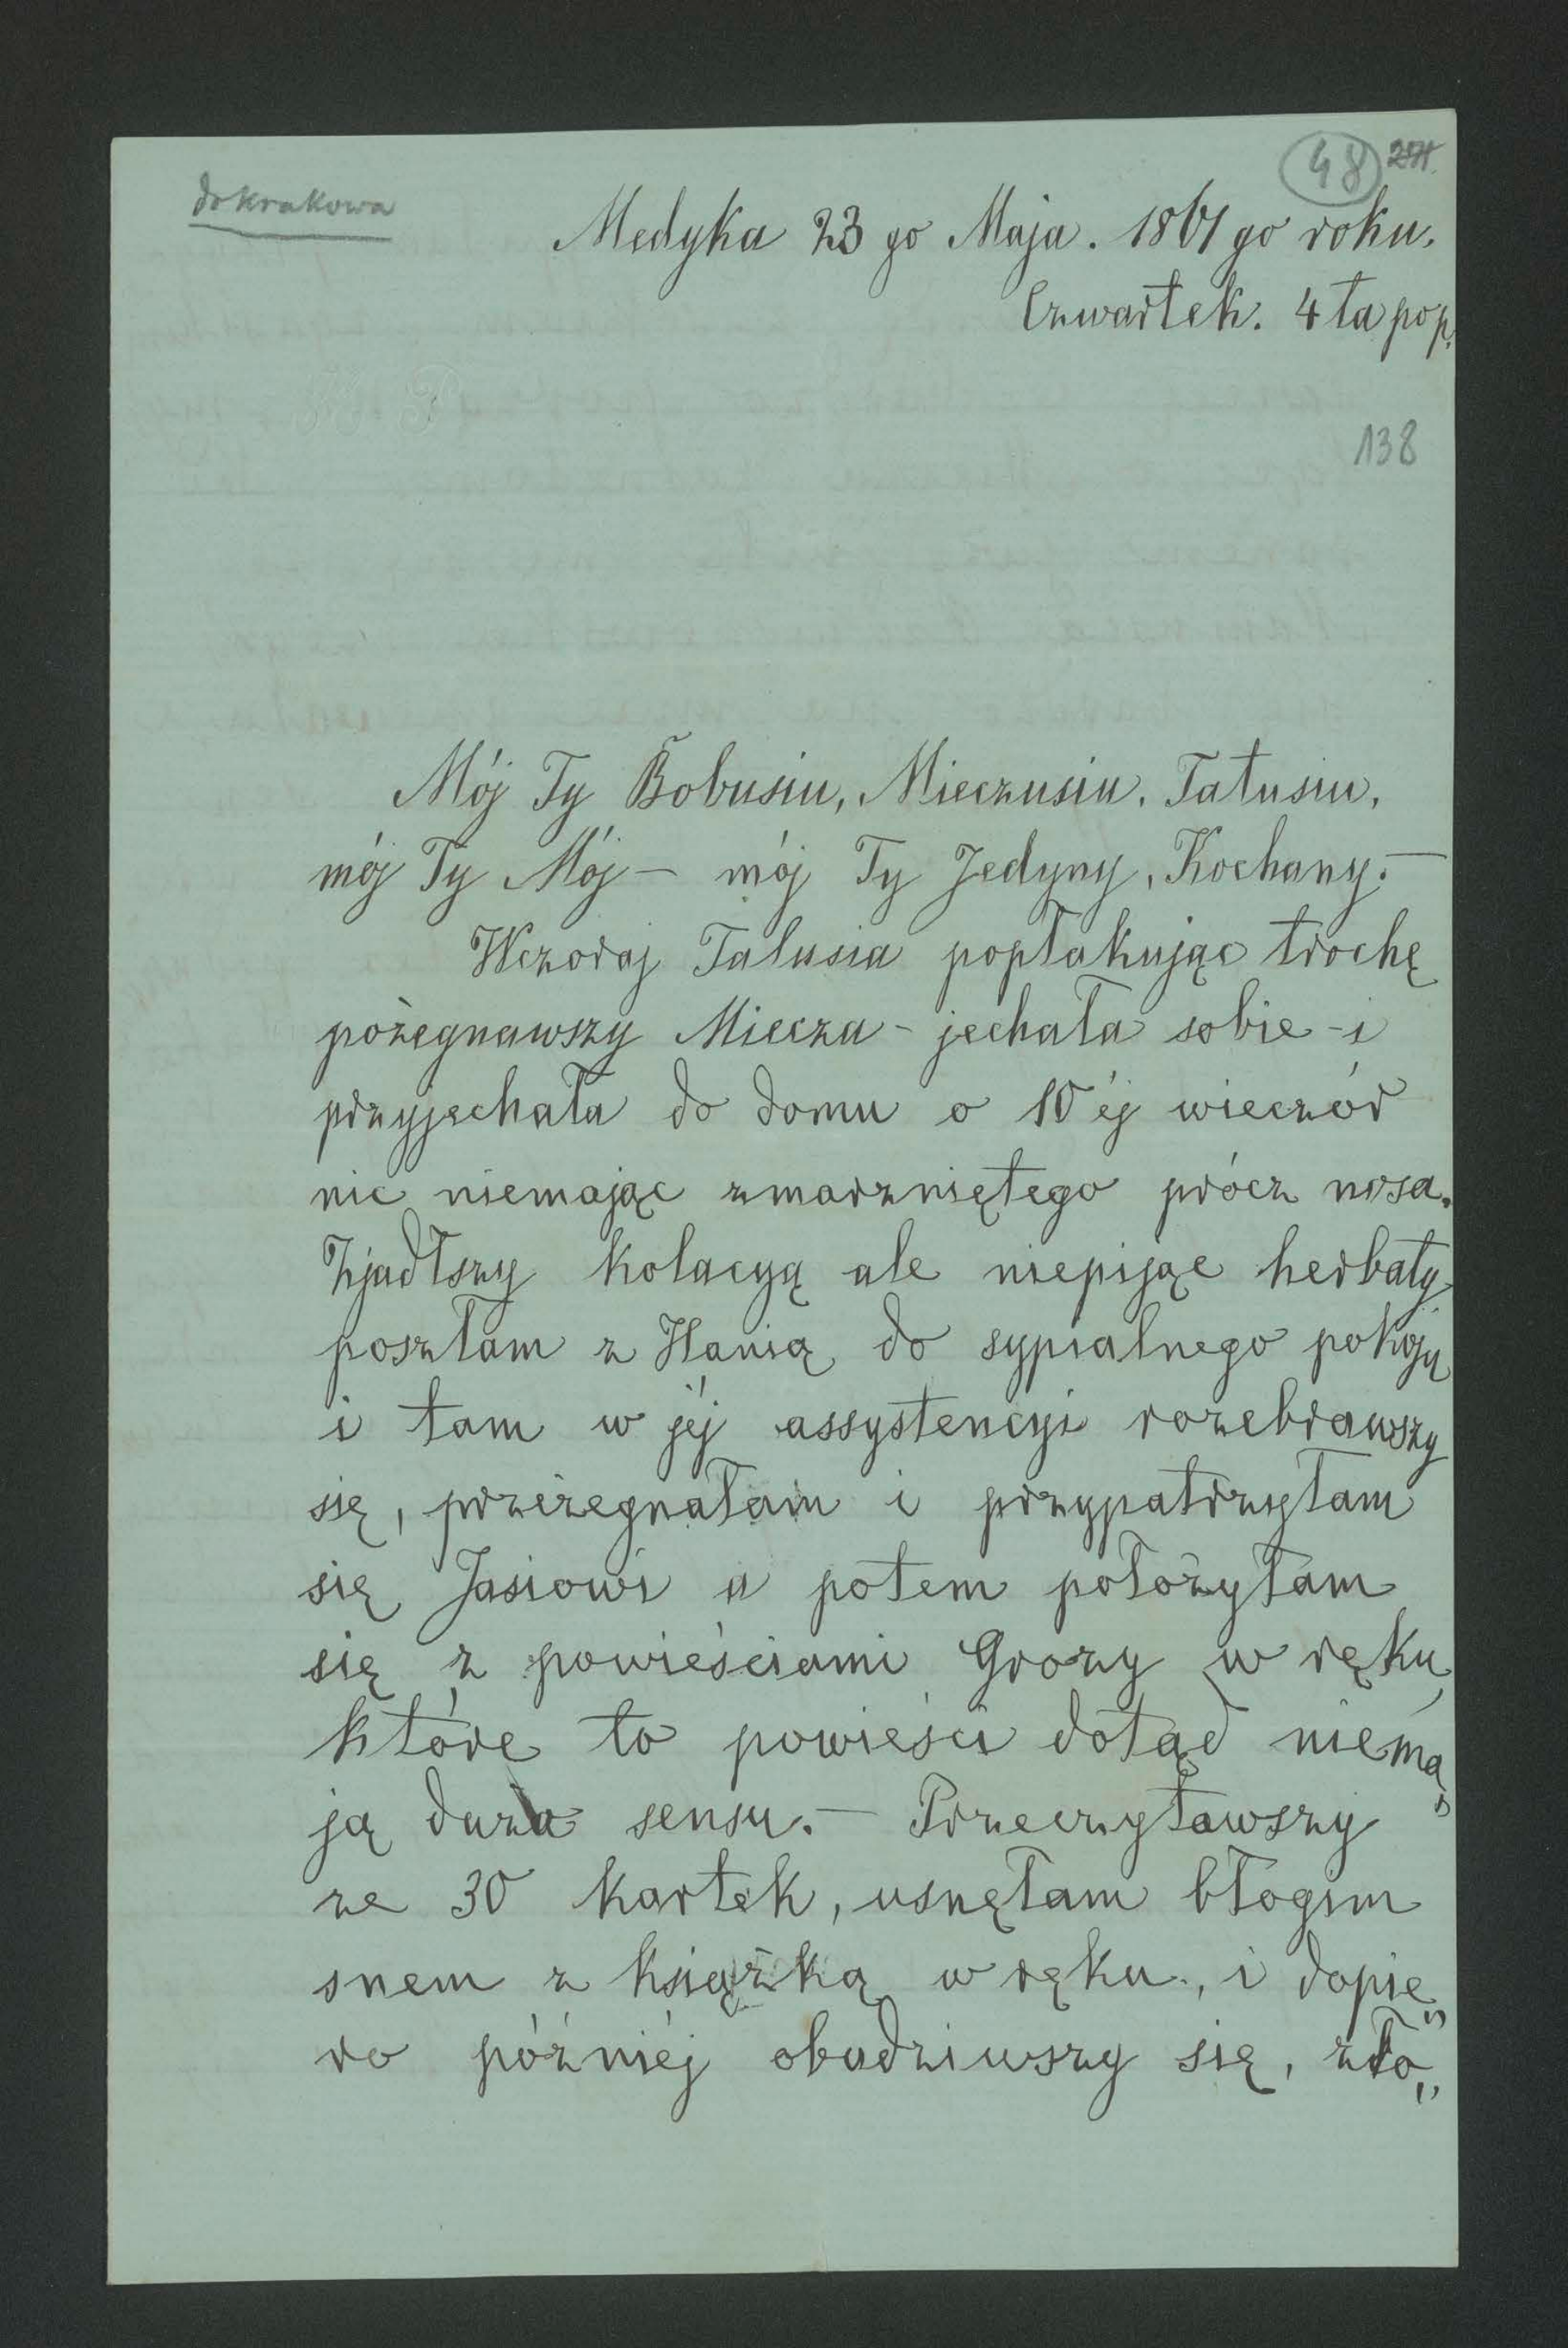 48 271.
do Krakowa
Medyka 23 go Maja. 1861 go roku.
Czwartek. 4 ta pop.
H. P.
138
Mój Ty Bobusiu, Mieczusiu, Tatusiu,
mój Ty Mój — mój Ty Jedyny, Kochany. —
Wczoraj Talusia popłakując trochę
pożegnawszy Miecza - jechała sobie - i
przyjechała do domu o 10 éj wieczór
nic niemając zmarzniętego prócz nosa.
Zjadłszy kolacyą ale niepijąc herbaty
poszłam z Hanią do sypialnego pokoju
i tam w jéj assystencyi rozebrawszy
się, przeżegnałam i przypatrzyłam
się Jasiowi a potem położyłam
się z powieściami Grozy w ręku,
które to powieści dotąd niema„
ją dużo sensu. — Przeczytawszy
ze 30 kartek, usnęłam błogim
snem z książką w ręku, i dopie„
ro późniéj obudziwszy się, zło„